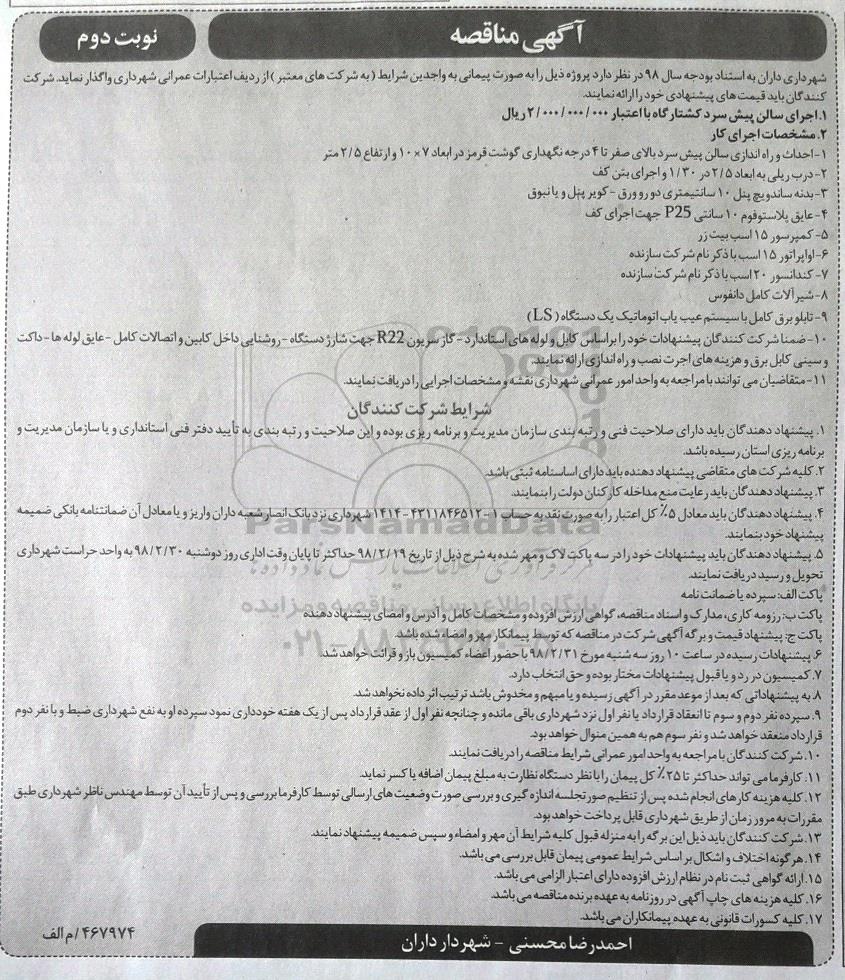 آگهی مناقصه
نوبت دوم
شهرداری داران به استناد بودجه سال ۹۸ در نظر دارد پروژه ذیل را به صورت پیمانی به واجدین شرایط (به شرکت های معتبر) از ردیف اعتبارات عمرانی شهرداری واگذار نماید. شرکت
کنندگان باید قیمت های پیشنهادی خود را ارائه نمایند.
۱. اجرای سالن پیش سرد کشتارگاه با اعتبار ۲/۰۰۰/۰۰۰/۰۰۰ ریال
۲. مشخصات اجرای کار
۱- احداث و راه اندازی سالن پیش سرد بالای صفر تا ۴ درجه نگهداری گوشت قرمز در ابعاد ۷×۱۰ و ارتفاع ۲/۵ متر
۲- درب ریلی به ابعاد ۲/۵ در ۱/۳۰ و اجرای بتن کف
۳- بدنه ساندویچ پنل ۱۰ سانتیمتری دو رو ورق - کویر پنل و یا نبوق
۴- عایق پلاستوفوم ۱۰ سانتی P25 جهت اجرای کف
۵- کمپرسور ۱۵ اسب بیت زر
۶- اواپراتور ۱۵ اسب با ذکر نام شرکت سازنده
۷- کندانسور ۲۰ اسب با ذکر نام شرکت سازنده
۸- شیرآلات کامل دانفوس
۹- تابلو برق کامل با سیستم عیب یاب اتوماتیک یک دستگاه (LS)
۱۰- ضمنا شرکت کنندگان پیشنهادات خود را براساس کابل و لوله های استاندارد - گاز سریون R22 جهت شارژ دستگاه - روشنایی داخل کابین و اتصالات کامل - عایق لوله ها - داکت
و سینی کابل برق و هزینه های اجرت نصب و راه اندازی ارائه نمایند.
۱۱- متقاضیان می توانند با مراجعه به واحد امور عمرانی شهرداری نقشه و مشخصات اجرایی را دریافت نمایند.
شرایط شرکت کنندگان
۱. پیشنهاد دهندگان باید دارای صلاحیت فنی و رتبه بندی سازمان مدیریت و برنامه ریزی بوده و این صلاحیت و رتبه بندی به تأیید دفتر فنی استانداری و یا سازمان مدیریت و
برنامه ریزی استان رسیده باشد.
۲. کلیه شرکت های متقاضی پیشنهاد دهنده باید دارای اساسنامه ثبتی باشد.
۳. پیشنهاد دهندگان باید رعایت منع مداخله کارکنان دولت را بنمایند.
۴. پیشنهاد دهندگان باید معادل ۵٪ کل اعتبار را به صورت نقد به حساب ۱-۴۳۱۱۸۴۶۵۱۲-۱۴۱۴ شهرداری نزد بانک انصار شعبه داران واریز و یا معادل آن ضمانتنامه بانکی ضمیمه
پیشنهاد خود بنمایند.
۵. پیشنهاد دهندگان باید پیشنهادات خود را در سه پاکت لاک و مهر شده به شرح ذیل از تاریخ ۹۸/۲/۱۹ حداکثر تا پایان وقت اداری روز دوشنبه ۹۸/۲/۳۰ به واحد حراست شهرداری
تحویل و رسید دریافت نمایند.
پاکت الف: سپرده یا ضمانت نامه
پاکت ب: رزومه کاری، مدارک و اسناد مناقصه، گواهی ارزش افزوده و مشخصات کامل و آدرس و امضای پیشنهاد دهنده
پاکت ج: پیشنهاد قیمت و برگه آگهی شرکت در مناقصه که توسط پیمانکار مهر و امضاء شده باشد.
۶. پیشنهادات رسیده در ساعت ۱۰ روز سه شنبه مورخ ۹۸/۲/۳۱ با حضور اعضاء کمیسیون باز و قرائت خواهد شد.
۷. کمیسیون در رد و یا قبول پیشنهادات مختار بوده و حق انتخاب دارد.
۸. به پیشنهاداتی که بعد از موعد مقرر در آگهی رسیده و یا مبهم و مخدوش باشد ترتیب اثر داده نخواهد شد.
۹. سپرده نفر دوم و سوم تا انعقاد قرارداد با نفر اول نزد شهرداری باقی مانده و چنانچه نفر اول از عقد قرارداد پس از یک هفته خودداری نمود سپرده او به نفع شهرداری ضبط و با نفر دوم
قرارداد منعقد خواهد شد و نفر سوم هم به همین منوال خواهد بود.
۱۰. شرکت کنندگان با مراجعه به واحد امور عمرانی شرایط مناقصه را دریافت نمایند.
۱۱. کارفرما می تواند حداکثر تا ۲۵٪ کل پیمان را با نظر دستگاه نظارت به مبلغ پیمان اضافه یا کسر نماید.
۱۲. کلیه هزینه کارهای انجام شده پس از تنظیم صورتجلسه اندازه گیری و بررسی صورت وضعیت های ارسالی توسط کارفرما بررسی و پس از تأیید آن توسط مهندس ناظر شهرداری طبق
مقررات به مرور زمان از طریق شهرداری قابل پرداخت خواهد بود.
۱۳. شرکت کنندگان باید ذیل این برگه را به منزله قبول کلیه شرایط آن مهر و امضاء و سپس ضمیمه پیشنهاد نمایند.
۱۴. هرگونه اختلاف و اشکال بر اساس شرایط عمومی پیمان قابل بررسی می باشد.
۱۵. ارائه گواهی ثبت نام در نظام ارزش افزوده دارای اعتبار الزامی می باشد.
۱۶. کلیه هزینه های چاپ آگهی در روزنامه به عهده برنده مناقصه می باشد.
۱۷. کلیه کسورات قانونی به عهده پیمانکاران می باشد.
احمدرضا محسنی - شهردار داران
۴۶۷۹۷۴/م الف
ParsNamadData